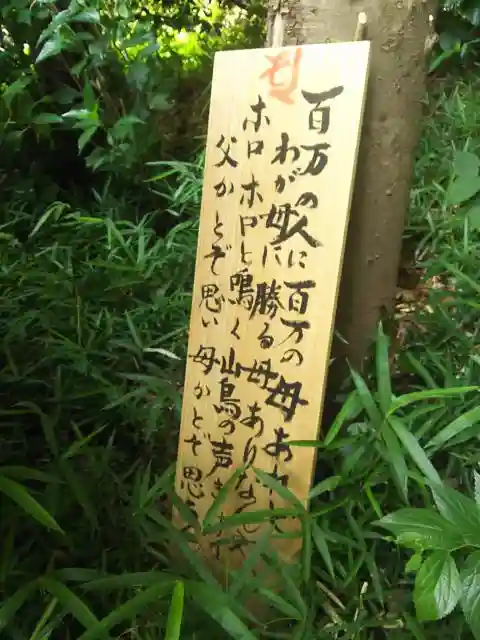 百万の人に百万の母あれど
わが母に勝る母ありなむや
ホロホロと鳴く山鳥の声きけば
父かとぞ思い母かとぞ思う